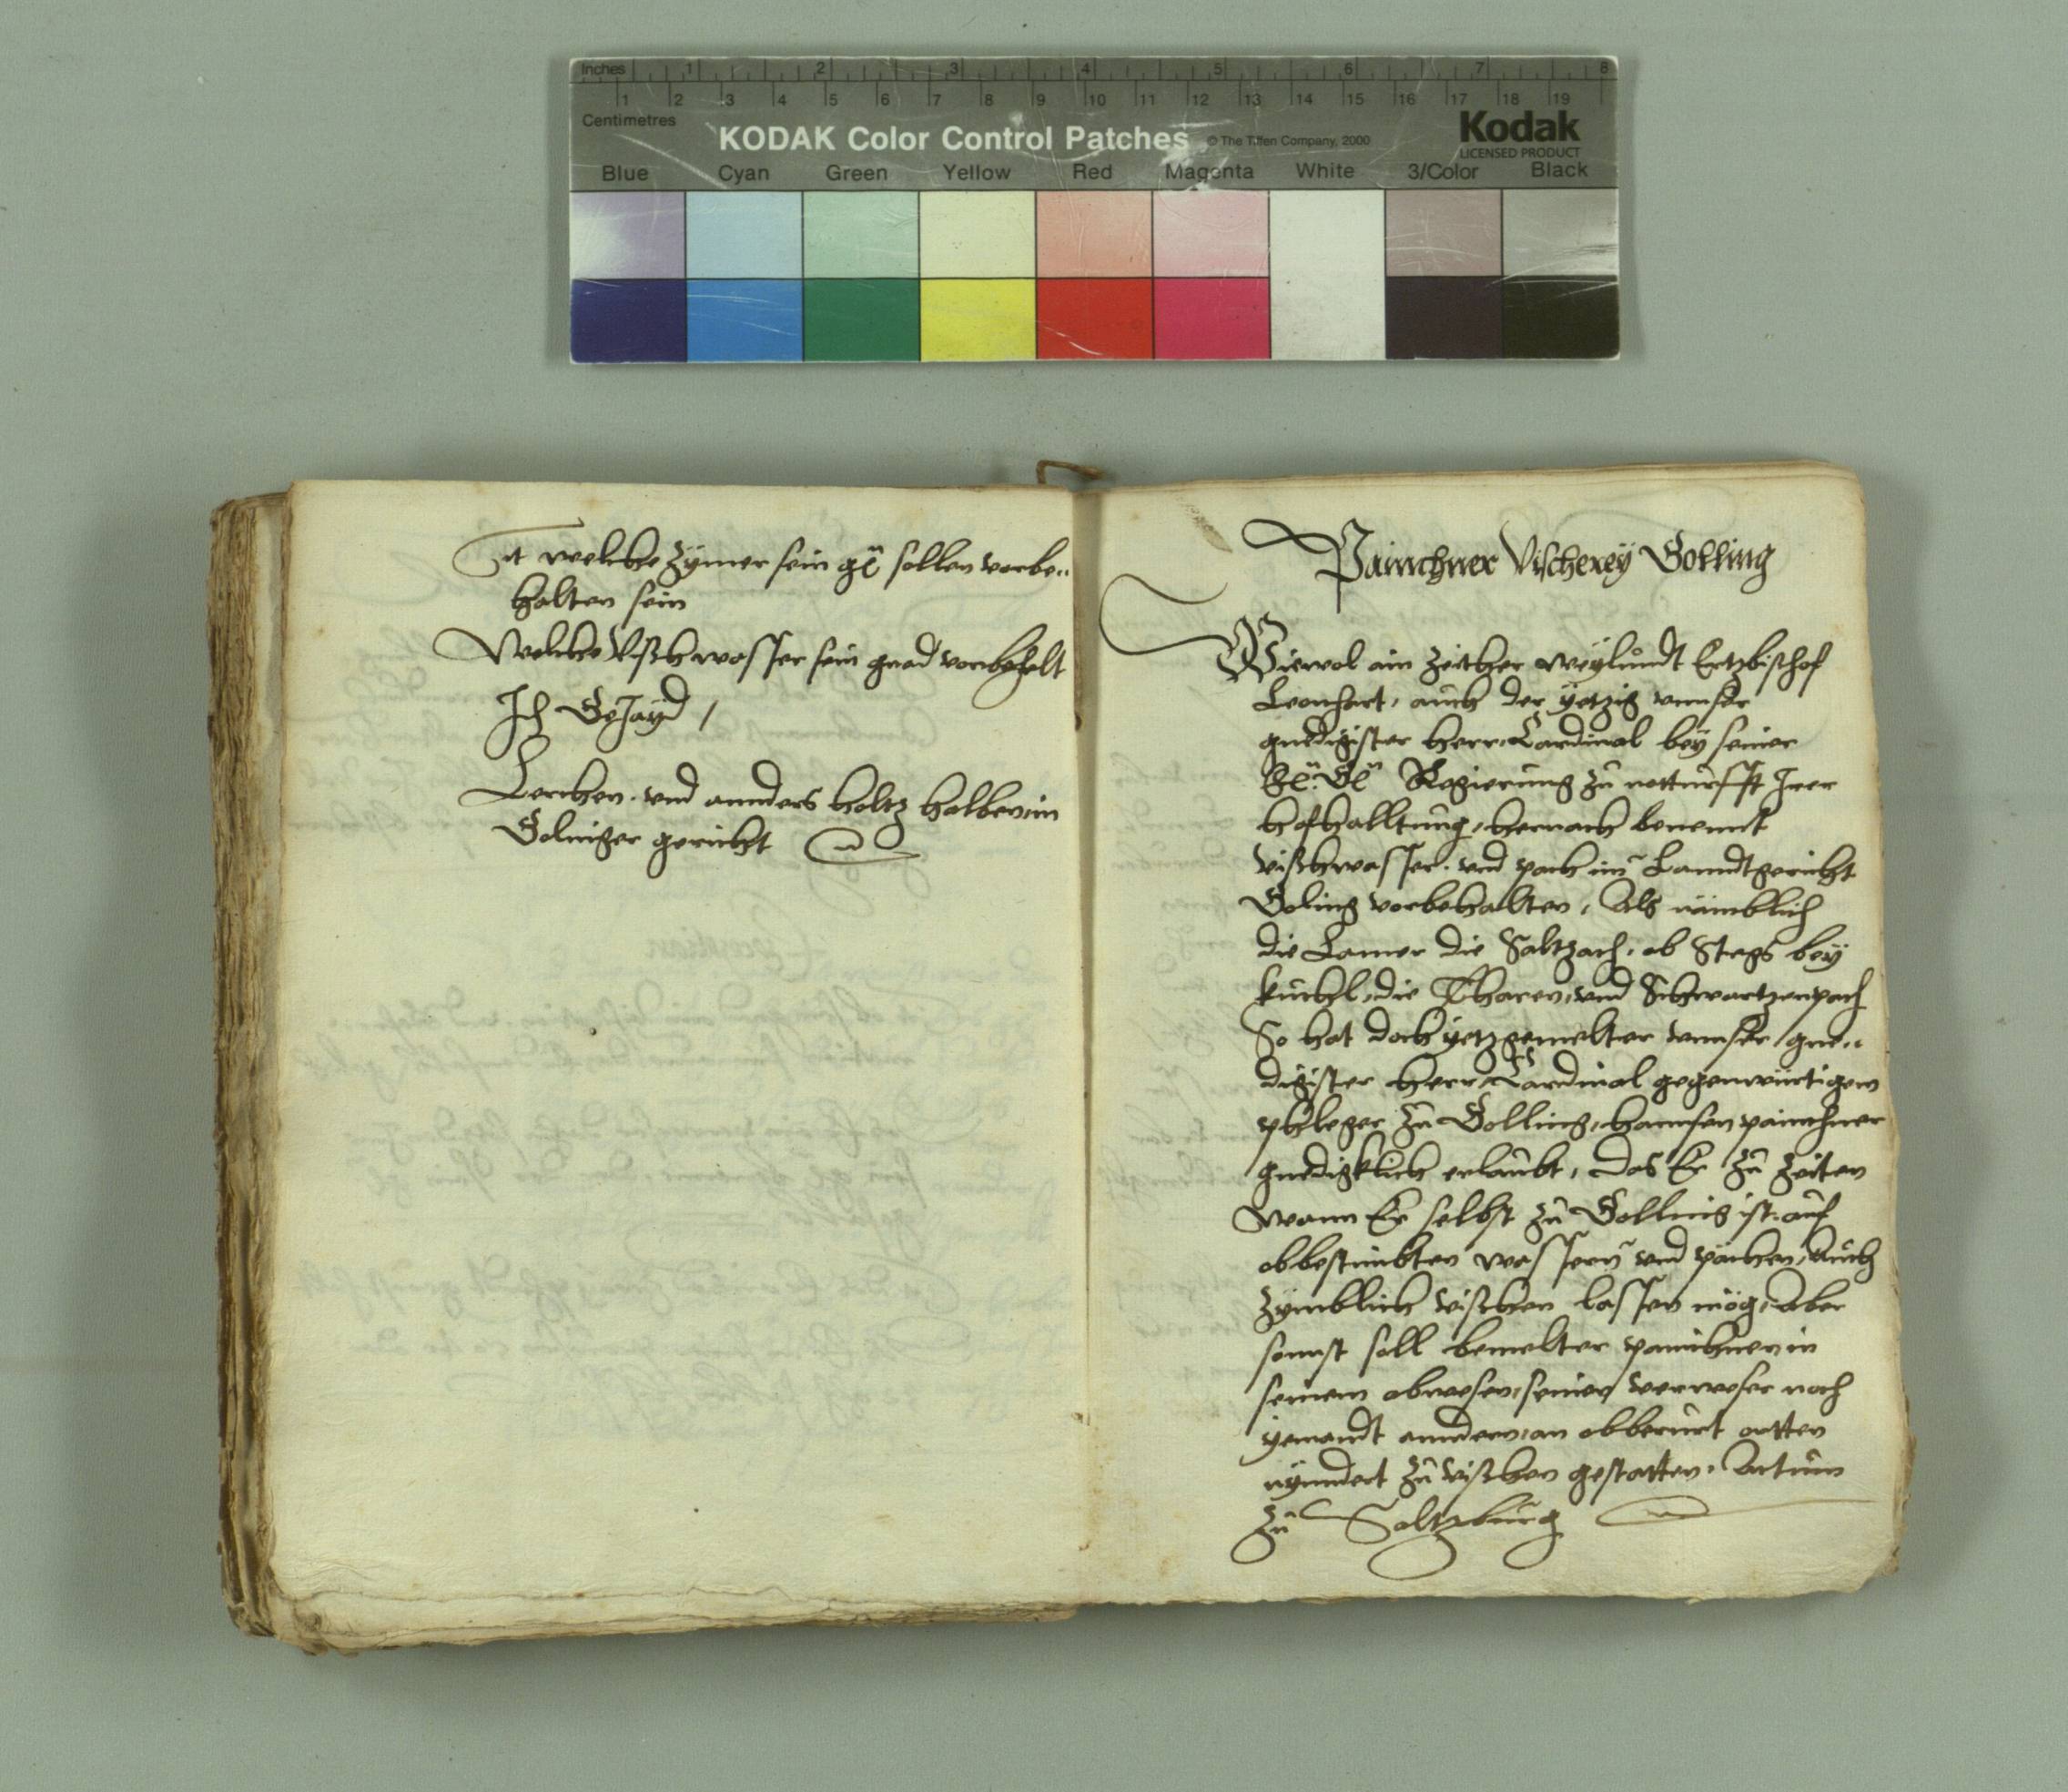 Inches 1 2 3 4 5 6 7 8
1 2 3 4 5 6 7 8 9 10 11 12 13 14 15 16 17 18 19
Centimetres
KODAK Color Control Patches © The Tiffen Company, 2000
Kodak
LICENSED PRODUCT
Blue Cyan Green Yellow Red Magenta White 3/Color Black
It welche Zymer sein gn sollen vorbe„
halten sein
Welche Vischwasser sein gnad vorbehelt
Jch Gejayd /
Lerchen. vnd annders holtz halben im
Golinger gericht
Painchner Vischerey Golling
Wiewol ain Zeither weylundt Ertzbischof
Leonhart, auch der yetzig vnnser
gnedigister herr Cardinal bey seiner
Regierung zu notturfft Irer
hofhalltung, hernach benennt
vischwasser. vnd pach im Lanndtgericht
Goling vorbehalten, Als nämblich
die Lamer die Saltzach, ob Stegs bey
kuchl, die Tharen, vnd Schwartzenpach
So hat doch yetzgemelter vnnser gne„
digister herr Cardinal gegenwürtigem
phleger zu Golling, hannsen painchner
gnedigklich erlaubt, das Er zu Zeiten
wann Er selbst zu Golling ist, auf
obbestimbten wassern vnd pächen, Auch
zymblich vischen lassen mög, Aber
sonnst soll bemelter painchner in
seinem abwesen, seinen verweser noch
yemandt anndern, an obberürt ortten
nynndert zu vischen gestatten. Actum
zu Saltzburg